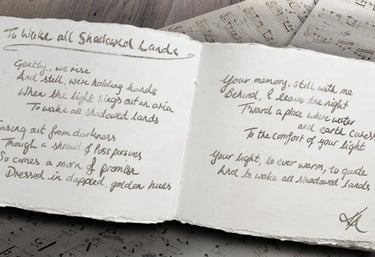 To Wake all Shadowed Lands
Gently, we rise
And still, we're holding hands
When the light sings out an aria
To wake all shadowed lands
out from darkness
Though a shroud of
So comes a morn of promise
Dressed in dappled, golden hues
Your memory, still with me
Behind, I leave the night
T'ward a place where water
and earth caress
To the comfort of your light
Your light, so ever warm, to guide
And to wake all shadowed lands